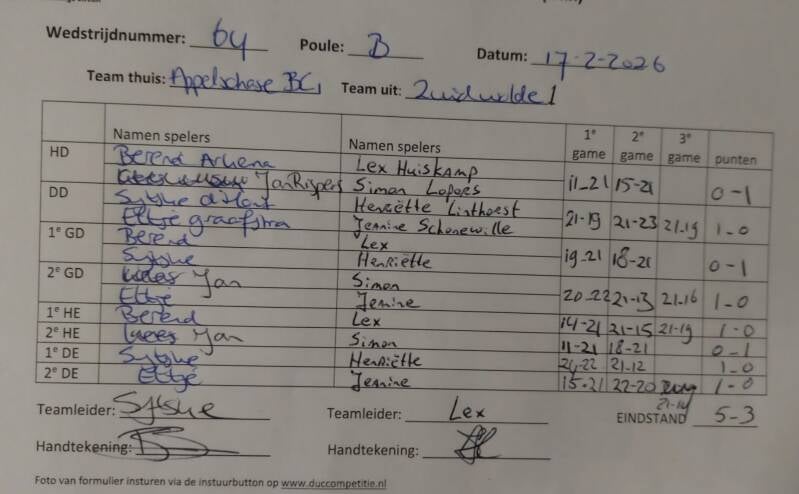 Wedstrijdnummer: 64 Poule: B Datum: 17-2-2026
Team thuis: Appelschase BC1 Team uit: Zuidwolde 1
Namen spelers Namen spelers 1e game 2e game 3e game punten
HD Berend Lex Huiskamp
Jan Simon 11-21 15-21 0-1
DD Sytske Henriëtte Linthorst
Eltje graafstra Jennine Schonewille 21-19 21-23 21-19 1-0
1e GD Berend Lex
Sytske Henriëtte 19-21 18-21 0-1
2e GD Jan Simon
Eltje Jennine 20-22 21-13 21-16 1-0
1e HE Berend Lex 14-21 21-15 21-19 1-0
2e HE Jan Simon 11-21 18-21 0-1
1e DE Sytske Henriëtte 24-22 21-12 1-0
2e DE Eltje Jennine 15-21 22-20 1-0
21-14
Teamleider: Sytske Teamleider: Lex EINDSTAND 5-3
Handtekening: Handtekening:
Foto van formulier insturen via de instuurbutton op www.duccompetitie.nl